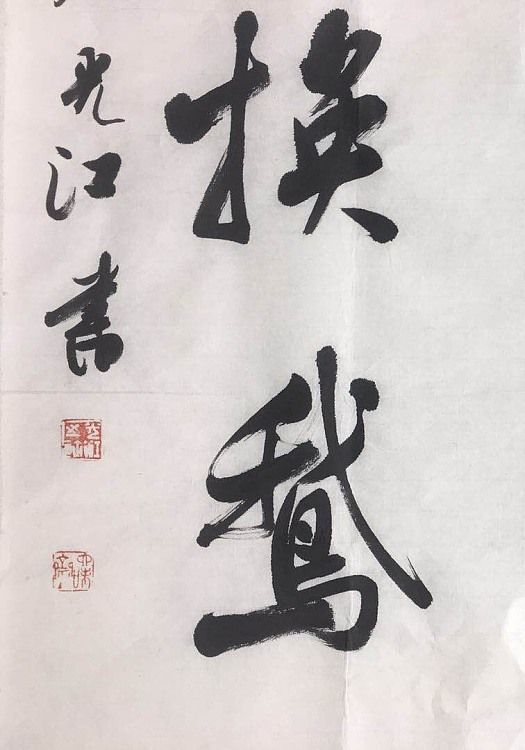 換鵞
光江書